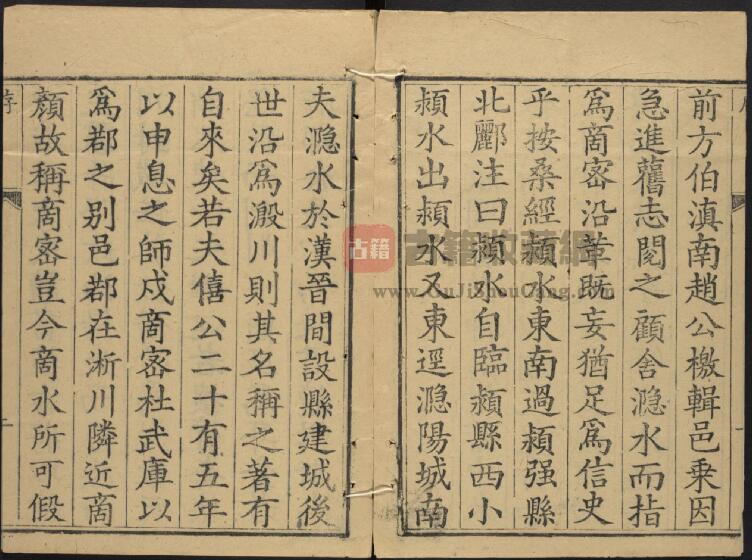 前方伯滇南趙公檄輯邑乘因
急進舊志閱之顧舍㶏水而指
爲商宻沿革既妄猶足爲信史
乎按桑經潁水東南過潁强縣
北酈注曰潁水自臨潁縣西小
潁水出潁水又東逕㶏陽城南
夫㶏水於漢晉間設縣建城後
世沿爲溵川則其名稱之著有
自來矣若夫僖公二十有五年
以申息之師戍商宻杜武庫以
爲鄀之别邑鄀在淅川隣近商
顏故稱商宻豈今商水所可假
古籍
古籍收藏網
www.GuJiShouCang.com
序
二